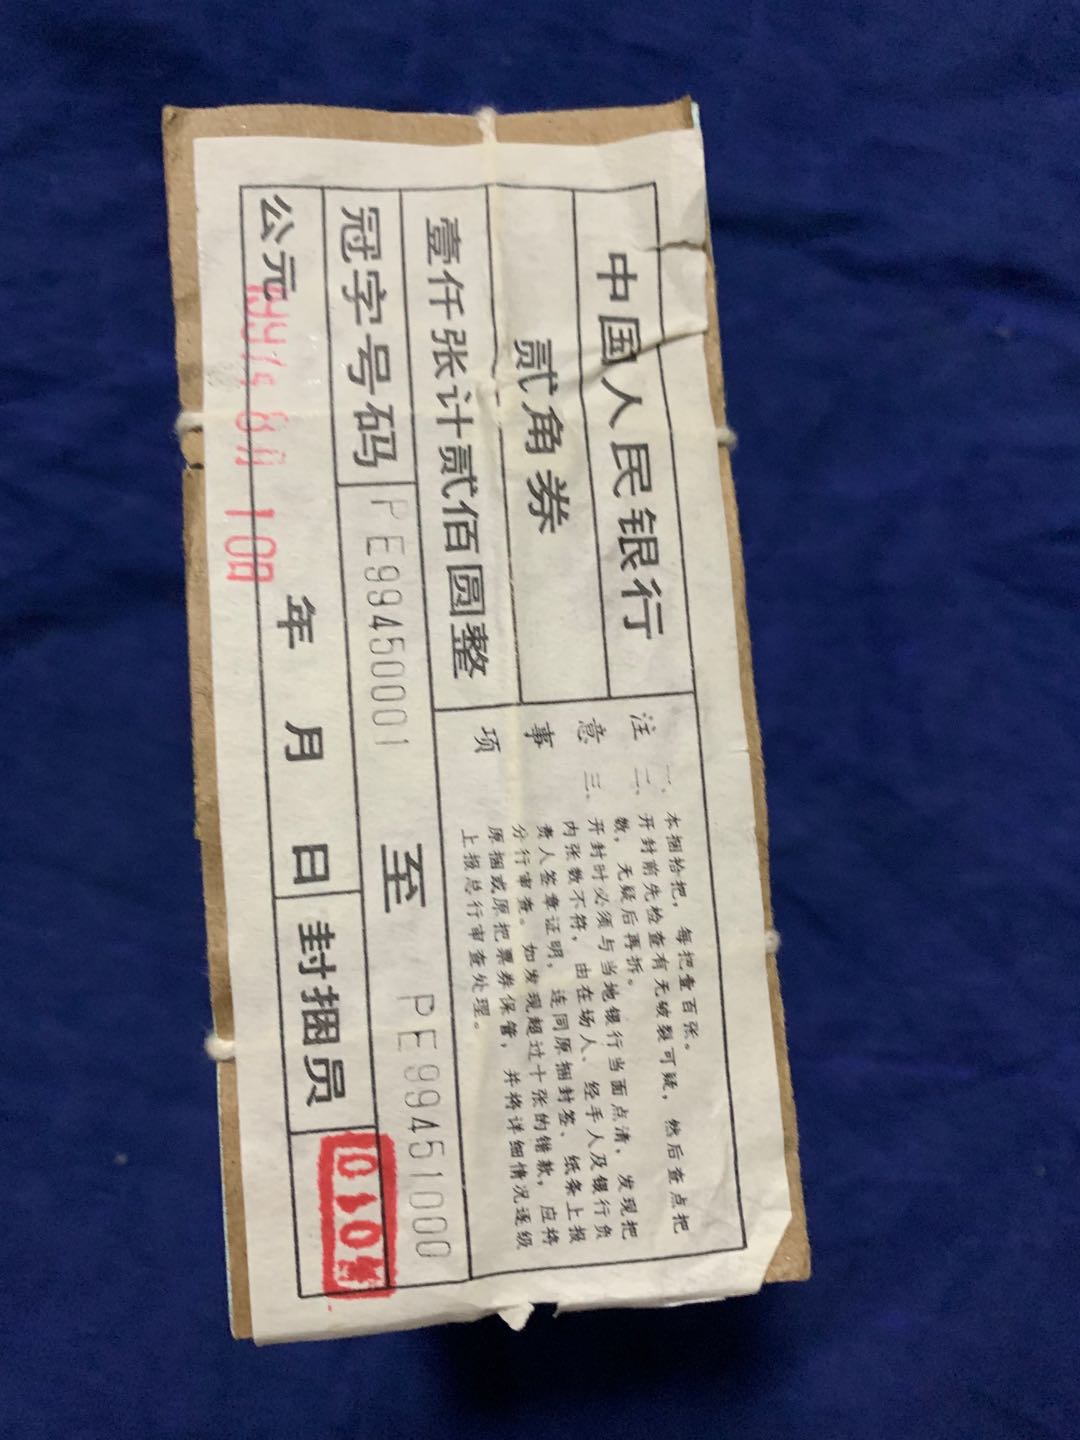 中国人民银行
贰角券
壹仟张计贰佰圆整
注意事项
一、本捆拾把，每把壹百张。
二、开封前先检查有无破裂可疑，然后查点把
数，无疑后再拆。
三、开封时必须与当地银行当面点清，发现把
内张数不符，由在场人、经手人及银行负
责人签章证明，连同原捆封签、纸条上报
分行审查。如发现超过十张的错款，应将
原捆或原把票券保管，并将详细情况逐级
上报总行审查处理。
冠字号码 PE99450001 至 PE99451000
公元 年 月 日 封捆员